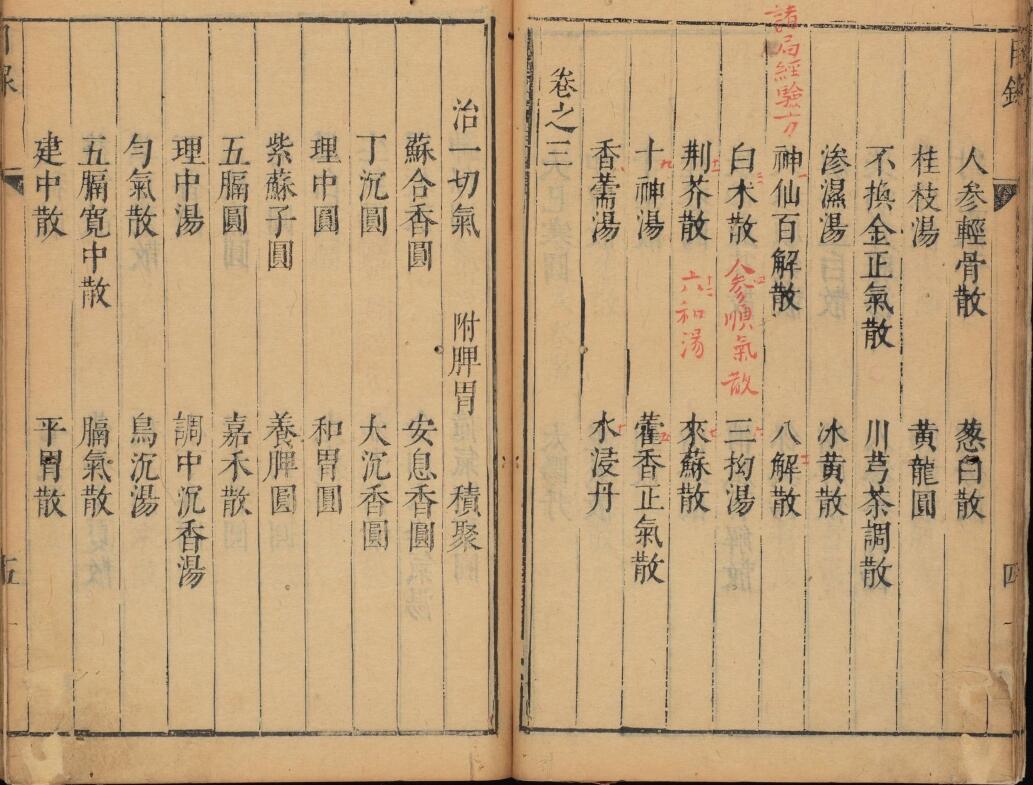 目錄
四
人參輕骨散　葱白散
桂枝湯　黃龍圓
不換金正氣散　川芎茶調散
滲濕湯　冰黃散
諸局經驗方
神仙百解散　八解散
白朮散　人參順氣散　三拘湯
荊芥散　六和湯　來蘇散
十神湯　藿香正氣散
香薷湯　水浸丹
卷之三
治一切氣　附脾胃　積聚
蘇合香圓　安息香圓
丁沉圓　大沉香圓
理中圓　和胃圓
紫蘇子圓　養脾圓
五膈圓　嘉禾散
理中湯　調中沉香湯
勻氣散　烏沉湯
五膈寬中散　膈氣散
建中散　平胃散
五